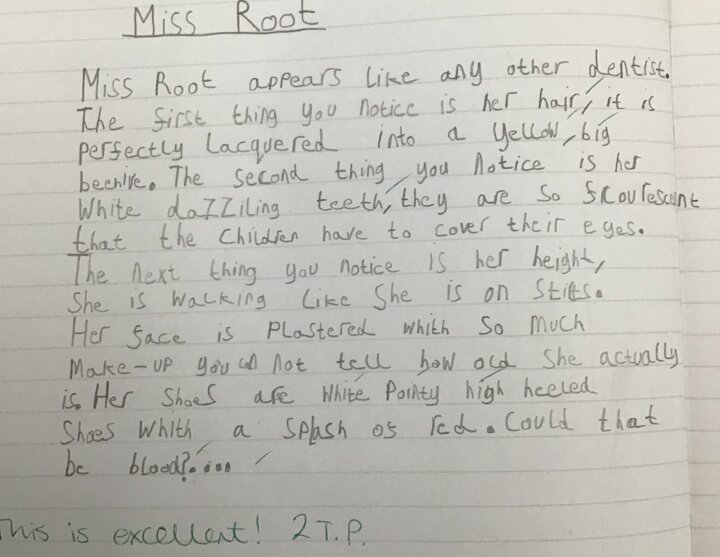 Miss Root
Miss Root appears like any other dentist.
The first thing you notice is her hair, it is
perfectly lacquered into a yellow, big
beehive. The second thing, you notice is her
White dazziling teeth, they are so flourescent
that the children have to cover their eyes.
The next thing you notice is her height,
She is walking like She is on Stilts.
Her face is plastered whith so much
Make-up you can not tell how old she actually
is. Her Shoes are white pointy high heeled
Shoes Whith a Splash of red. Could that
be blood?....
This is excellent! 2 T.P.